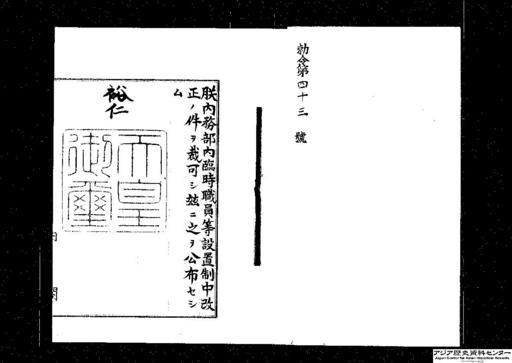 勅令第四十三號
朕内務部内臨時職員等設置制中改
正ノ件ヲ裁可シ茲ニ之ヲ公布セシ
ム
裕仁
天皇
御璽
内閣
アジア歴史資料センター
Japan Center for Asian Historical Records